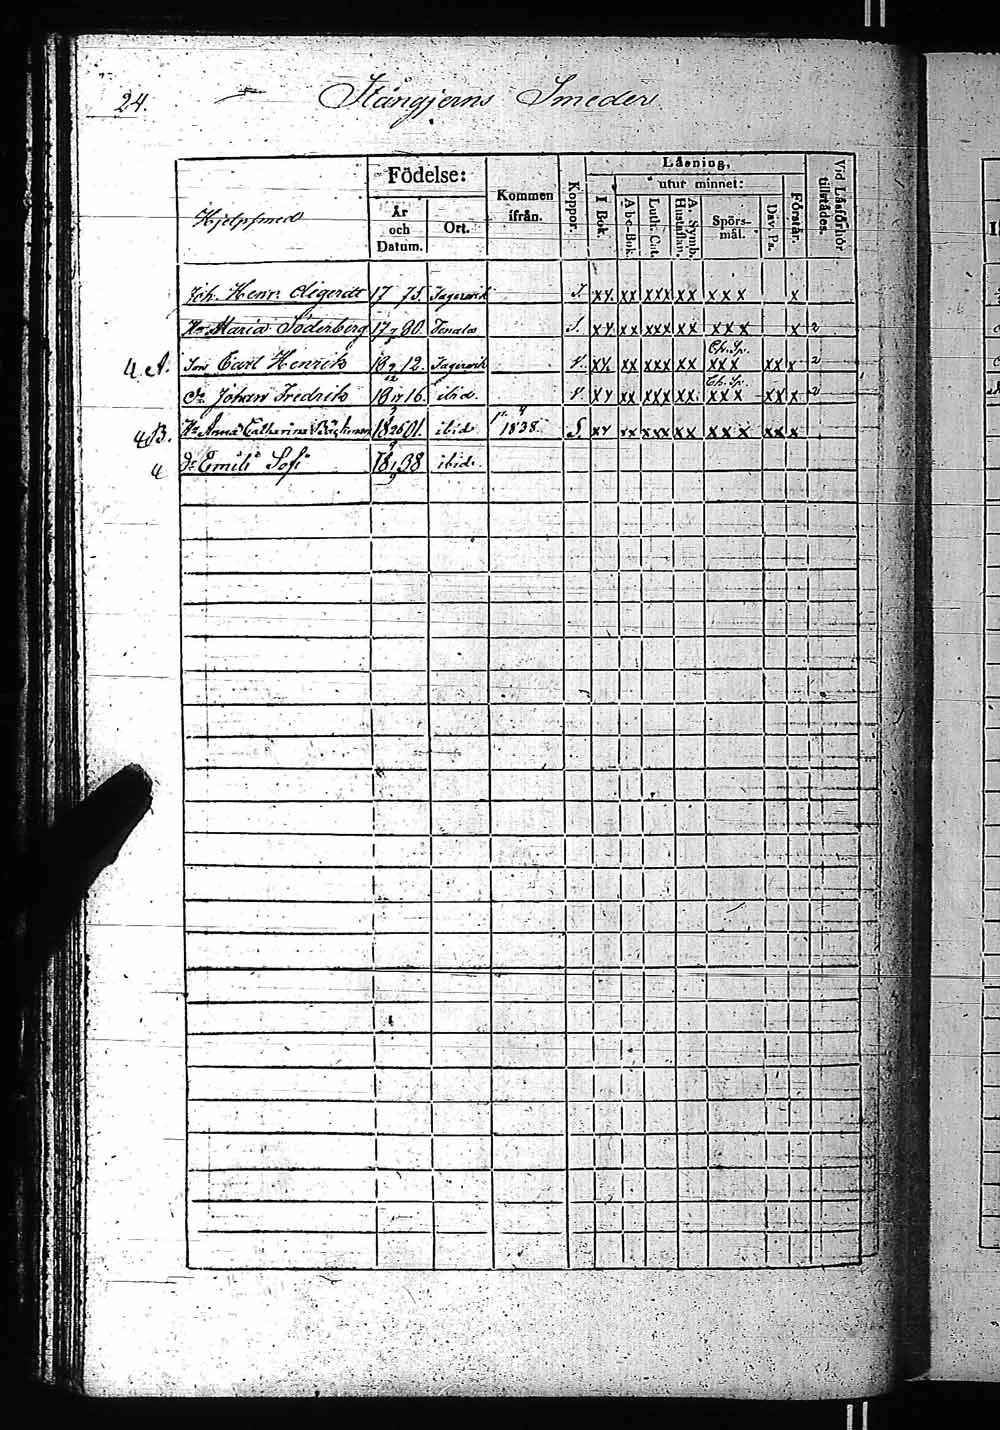 24. Stångjerns Smeder
Födelse: Kommen ifrån. Koppor. Läsning, Vid Läsförhör tillstädes.
utur minnet:
Hjelpsmed År och Datum. Ort. I Bok. Abc-Bok. Luth. Cat. A. Symb. Hustaflan. Spörsmål. Dav. Ps. Förstår.
Joh. Henr. 17 75. Fagervik xx xx xxx xx xxx x
Hu Maria Söderberg 17 90. S. xx xx xxx xx xxx x 2
4 A. Son Carl Henrik 18 12. Fagervik V. xx xx xxx xx xxx xx x 2
Do Johan Fredrik 18 16. ibid. V xx xx xxx xx xxx xx x 2
4 B. Hu Anna Catharina Bäckman 18 01. ibid 1838. S. xx xx xxx xx xxx xx x
4 Dr Emili Sofi 18 38 ibid.